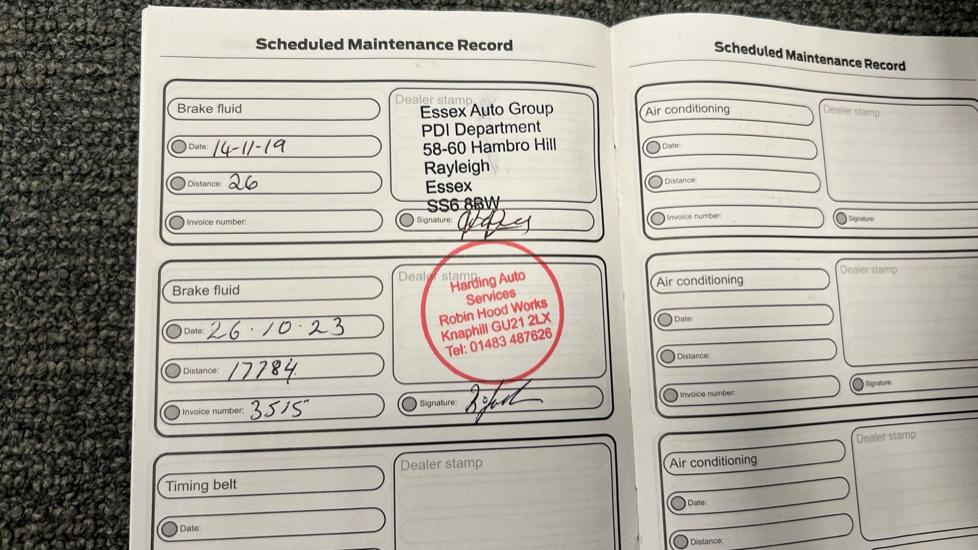 Scheduled Maintenance Record
Brake fluid
Date: 14-11-19
Distance: 26
Invoice number:
Dealer stamp
Essex Auto Group
PDI Department
58-60 Hambro Hill
Rayleigh
Essex
SS6 8BW
Signature:
Brake fluid
Date: 26.10.23
Distance: 17784
Invoice number: 3515
Dealer stamp
Harding Auto
Services
Robin Hood Works
Knaphill GU21 2LX
Tel: 01483 487626
Signature:
Timing belt
Date:
Dealer stamp
Scheduled Maintenance Record
Air conditioning
Date:
Distance:
Invoice number:
Dealer stamp
Signature:
Air conditioning
Date:
Distance:
Invoice number:
Dealer stamp
Signature:
Air conditioning
Date:
Distance:
Dealer stamp